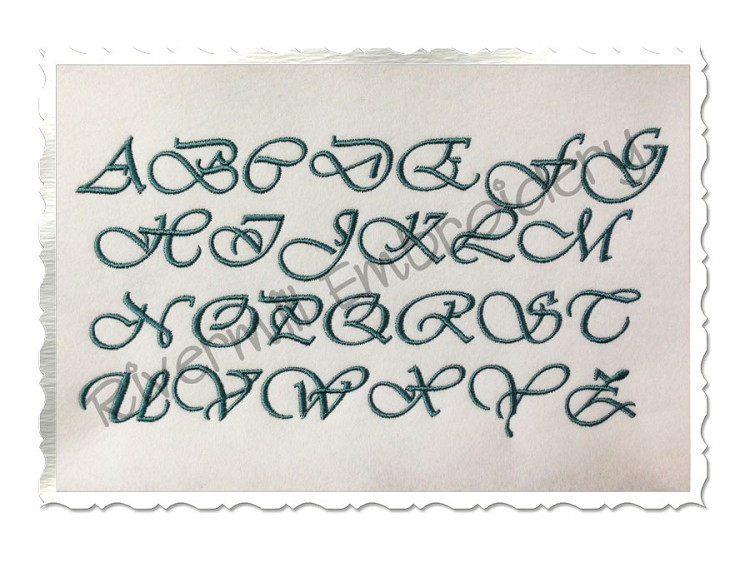 A B C D E F G
H I J K L M
N O P Q R S T
U V W X Y Z
Rivermill Embroidery